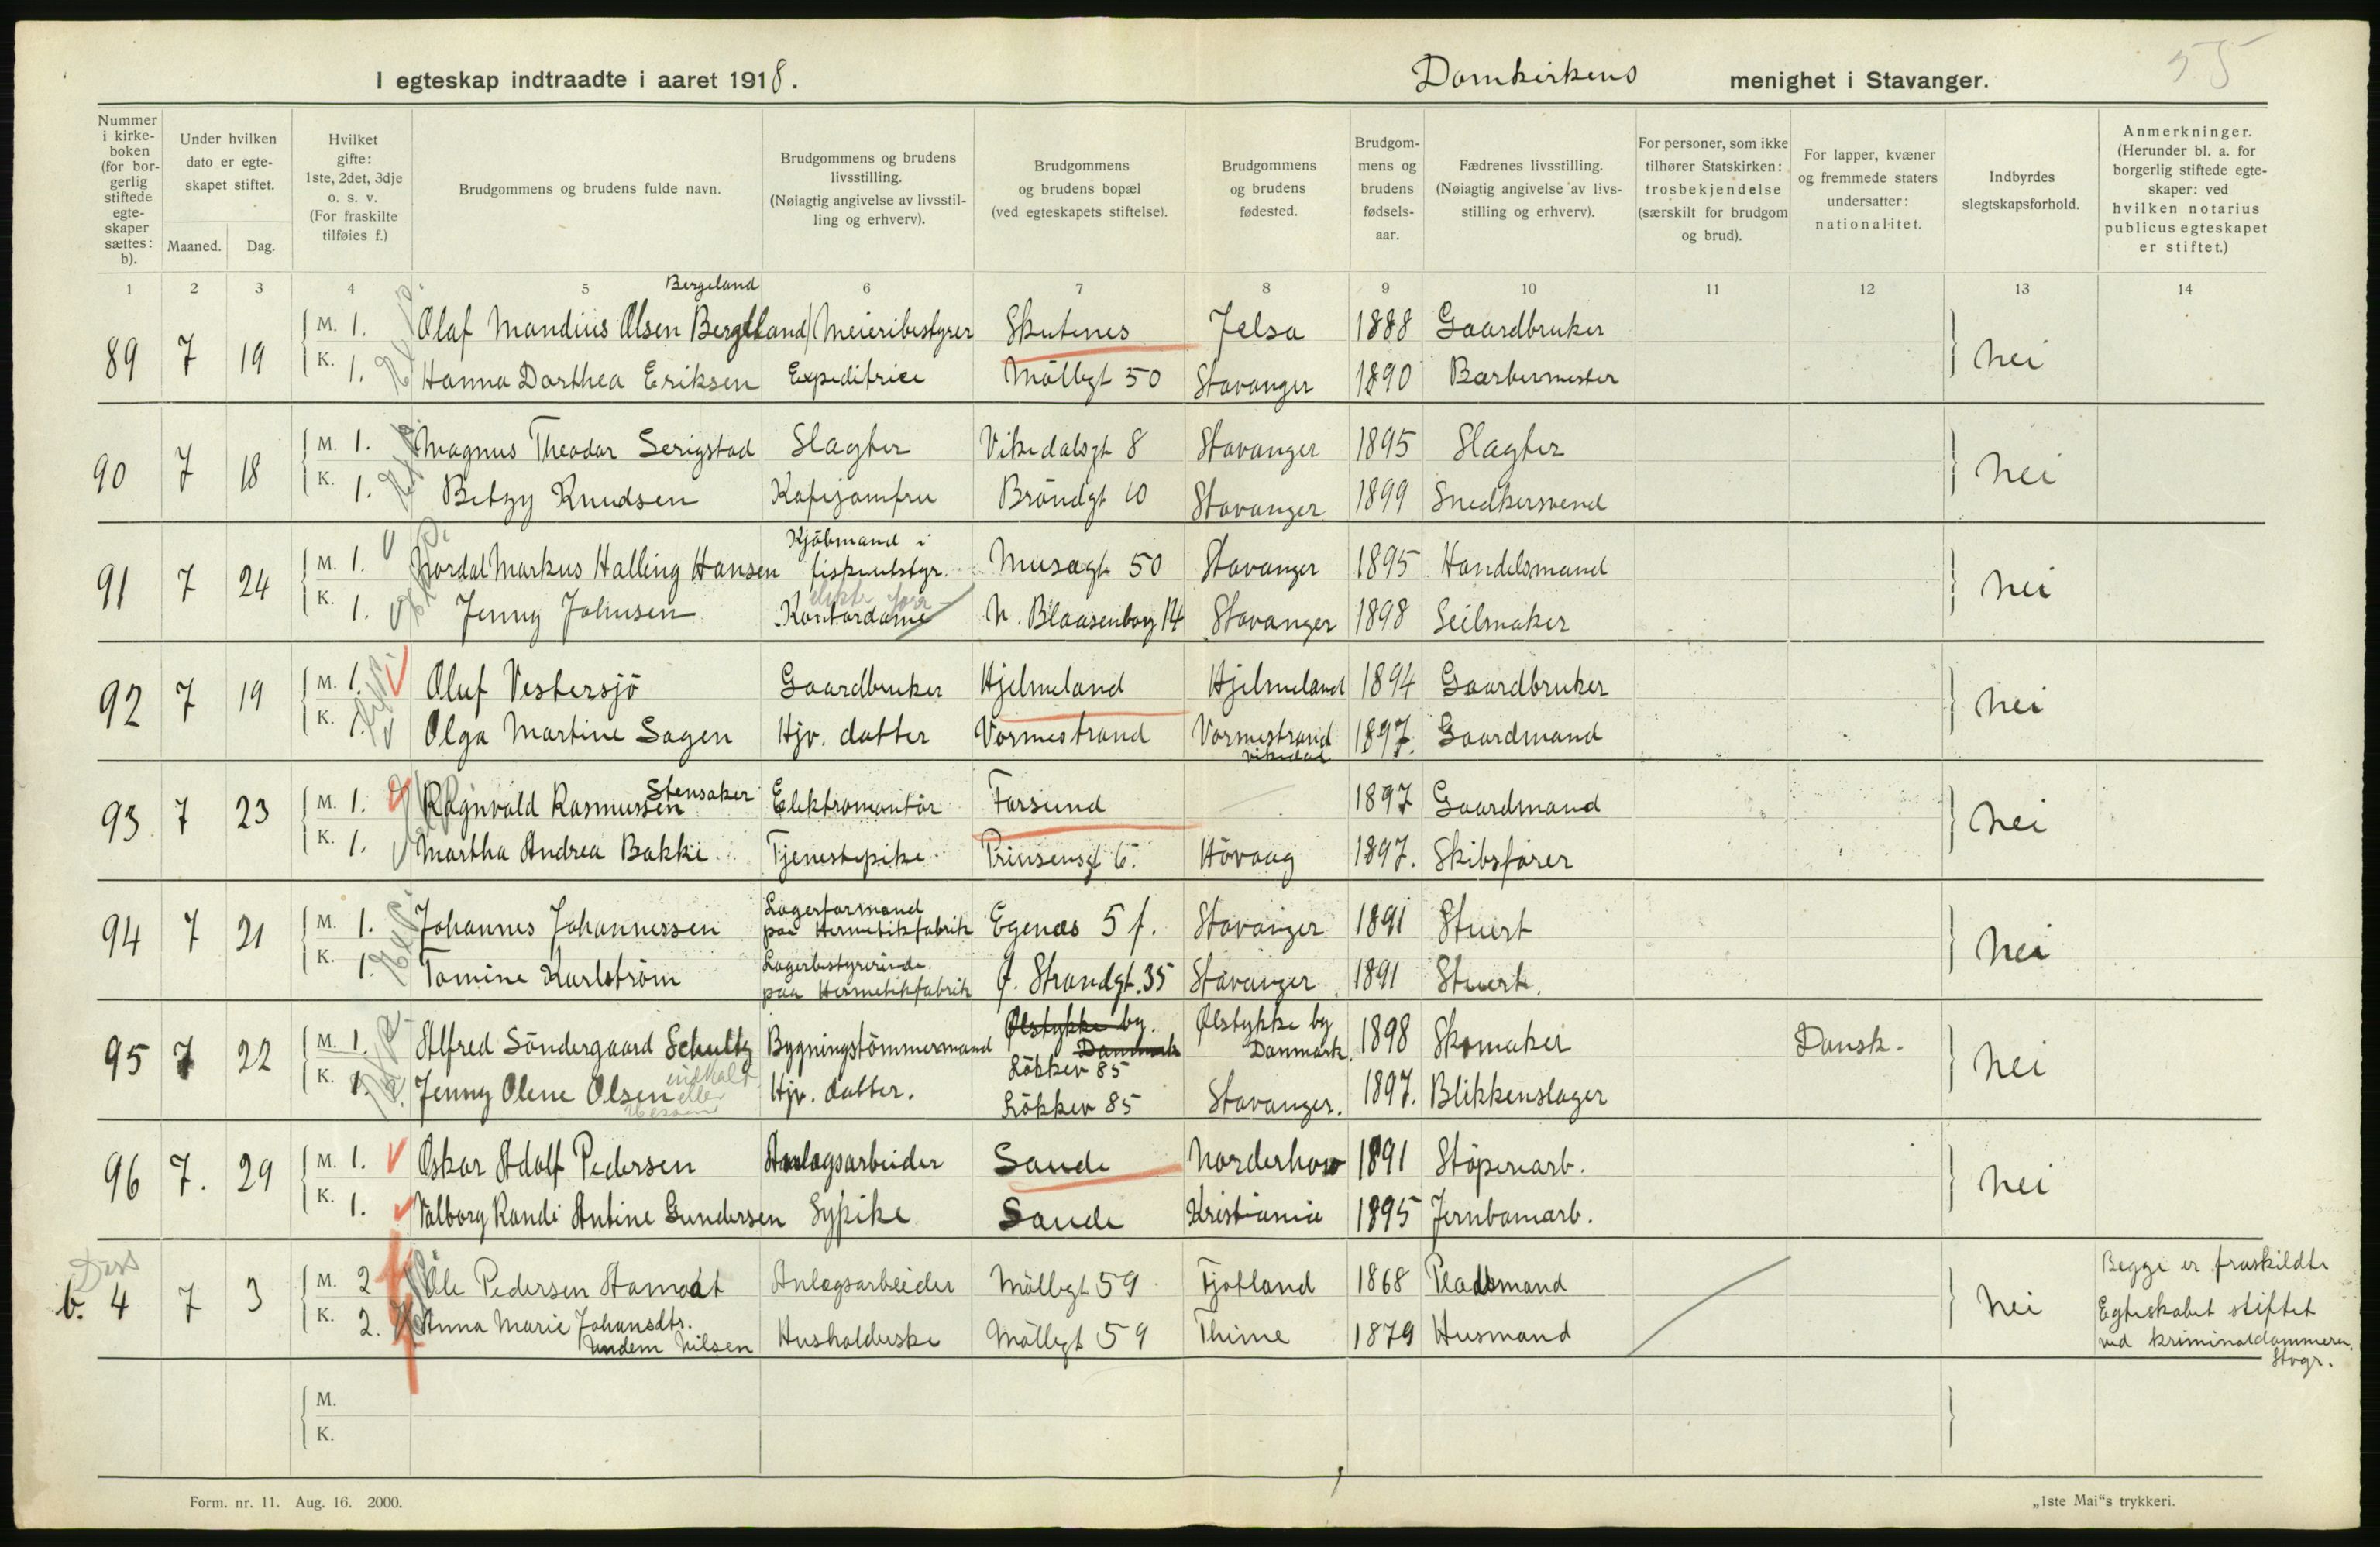 55
I egteskap indtraadte i aaret 1918. Domkirkens menighet i Stavanger.
Nummer i kirkeboken (for borgerlig stiftede egteskaper sættes: b).
Under hvilken dato er egteskapet stiftet.
Maaned. Dag.
Hvilket gifte: 1ste, 2det, 3dje o. s. v. (For fraskilte tilføies f.)
Brudgommens og brudens fulde navn.
Brudgommens og brudens livsstilling. (Nøiagtig angivelse av livsstilling og erhverv).
Brudgommens og brudens bopæl (ved egteskapets stiftelse).
Brudgommens og brudens fødested.
Brudgommens og brudens fødselsaar.
Fædrenes livsstilling. (Nøiagtig angivelse av livsstilling og erhverv).
For personer, som ikke tilhører Statskirken: trosbekjendelse (særskilt for brudgom og brud).
For lapper, kvæner og fremmede staters undersatter: nationalitet.
Indbyrdes slegtskapsforhold.
Anmerkninger. (Herunder bl. a. for borgerlig stiftede egteskaper: ved hvilken notarius publicus egteskapet er stiftet.)
1 2 3 4 5 6 7 8 9 10 11 12 13 14
Bergeland
89 7 19 M. 1. Olaf Mandius Olsen Bergeland Meieribestyrer Skutenes Jelsa 1888 Gaardbruker nei
K. 1. Hanna Dorthea Eriksen Expeditrice Möllegt 50 Stavanger 1890 Barbermester
90 7 18 M. 1. Magnus Theodor Serigstad Slagter Vikedalsgt 8 Stavanger 1895 Slagter nei
K. 1. Betzy Knudsen Kafejomfru Bröndgt 10 Stavanger 1899 Snedkersvend
91 7 24 M. 1. Nordal Markus Halling Hansen Kjöbmand i fiskeutstyr. Musegt 50 Stavanger 1895 Handelsmand nei
K. 1. Jenny Johnsen Kontordame N. Blaasenborg 14 Stavanger 1898 Seilmaker
92 7 19 M. 1. Oluf Vestersjö Gaardbruker Hjelmeland Hjelmeland 1894 Gaardbruker nei
K. 1. Olga Martine Sagen Hjv. datter Vormestrand Vormestrand Vikedal 1897. Gaardmand
93 7 23 M. 1. Ragnvald Rasmussen Stensaker Elektromontör Farsund 1897 Gaardmand nei
K. 1. Martha Andrea Bakke. Tjenestepike. Prinsensgt 6. Hövaag 1897. Skibsförer
94 7 21 M. 1. Johannes Johannessen Lagerformand paa Hermetikfabrik Egenæs 5 f. Stavanger 1891 Stuert nei
K. 1. Tomine Karlström Lagerbestyrerinde paa Hermetikfabrik Ø. Strandgt. 35 Stavanger 1891 Stuert.
95 7 22 M. 1. Alfred Söndergaard Schultz Bygningstömmermand Ølstykke by. Danmark Lökkev 85 Ølstykke by Danmark. 1898 Skomaker Dansk. nei
K. 1. Jenny Olene Olsen Hjv. datter. Lökkev 85 Stavanger. 1897. Blikkenslager
96 7. 29 M. 1. Oskar Adolf Pedersen Anlægsarbeider Sande Norderhov 1891 Stöperiarb. nei
K. 1. Valborg Randi Antine Gundersen Sypike Sande Kristiania 1895 Jernbanearb.
b. 4 7 3 M. 2 Ole Pedersen Aamodt Anlægsarbeider Möllegt 59 Fjotland 1868 Pladsmand nei Begge er fraskildte
K. 2. Anna Marie Johansdtr. Undem Nilsen Husholderske Möllegt 59 Thime 1879 Husmand Egteskabet stiftet ved kriminaldommeren. Stvgr.
M.
K.
Form. nr. 11. Aug. 16. 2000.
„1ste Mai“s trykkeri.